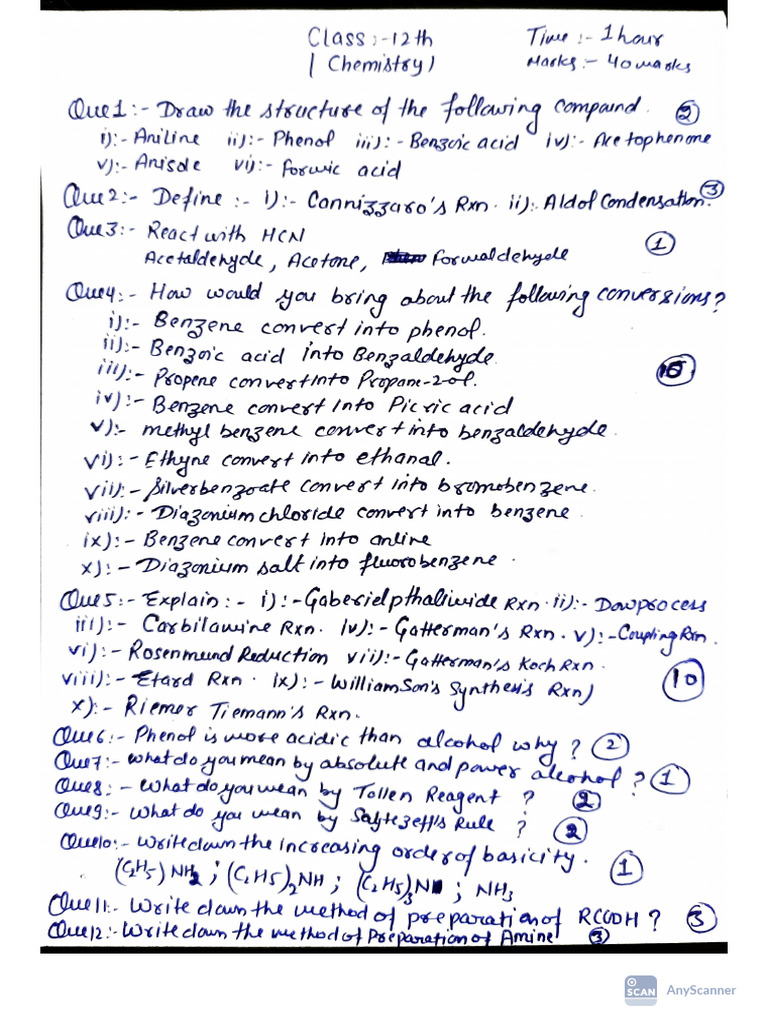 Class:-12th Time:- 1 hour
(Chemistry) Marks:- 40 marks
Que1:- Draw the structure of the following compound. (2)
i):- Aniline ii):- Phenol iii):- Benzoic acid iv):- Acetophenone
v):- Anisole vi):- formic acid
Que2:- Define:- i):- Cannizzaro's Rxn. ii):- Aldol Condensation. (3)
Que3:- React with HCN
Acetaldehyde, Acetone, formaldehyde (1)
Que4:- How would you bring about the following conversions?
i):- Benzene convert into phenol.
ii):- Benzoic acid into Benzaldehyde.
iii):- Propene convert into Propane-2-ol.
iv):- Benzene convert into Picric acid
v):- methyl benzene convert into benzaldehyde.
vi):- Ethyne convert into ethanal.
vii):- Silverbenzoate convert into bromobenzene.
viii):- Diazonium chloride convert into benzene.
ix):- Benzene convert into anline
x):- Diazonium salt into fluorobenzene.
Que5:- Explain:- i):- Gaberielpthalimide Rxn. ii):- Dowprocess
iii):- Carbilamine Rxn. iv):- Gatterman's Rxn. v):- Coupling Rxn.
vi):- Rosenmund Reduction vii):- Gatterman's Koch Rxn.
viii):- Etard Rxn. ix):- WilliamSon's Synthesis Rxn) (10)
x):- Riemer Tiemann's Rxn.
Que6:- Phenol is more acidic than alcohol why? (2)
Que7:- what do you mean by absolute and power alcohol? (1)
Que8:- What do you mean by Tollen Reagent? (2)
Que9:- What do you mean by Saytezeff's Rule? (2)
Que10:- Write down the increasing order of basicity. (1)
(C2H5)NH2; (C2H5)2NH; (C2H5)3N; NH3
Que11:- Write down the method of preparation of RCOOH? (3)
Que12:- Write down the method of Preparation of Amine (3)
SCAN AnyScanner